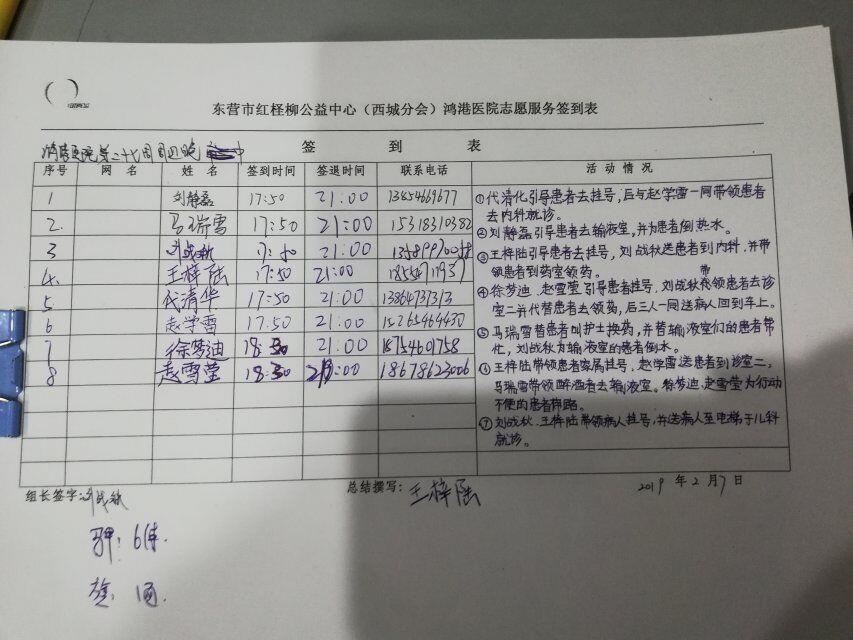 东营市红柽柳公益中心（西城分会）鸿港医院志愿服务签到表
签 到 表
鸿港医院第二十七周周四晚
序号 网 名 姓 名 签到时间 签退时间 联系电话 活 动 情 况
1 刘静磊 17:50 21:00 13854669677
2. 马瑞雪 17:50 21:00 15318310382
3 刘战秋 17:50 21:00
4. 王梓陆 17:50 21:00
5 代清华 17:50 21:00 13864737313
6 赵学雷 17:50 21:00 15265464430
7 徐梦迪 18:30 21:00 18754601758
8 赵雪莹 18:30 21:00 18678623006
①代清化引导患者去挂号，后与赵学雷一同带领患者
去内科就诊。
②刘静磊引导患者去输液室，并为患者倒热水。
③王梓陆引导患者去挂号，刘战秋送患者到内科，并带
领患者到药室领药。
④徐梦迪 赵雪莹引导患者挂号，刘战秋带领患者去诊
室二并代替患者去领药，后三人一同送病人回到车上。
⑤马瑞雪替患者叫护士换药，并替输液室们的患者帮
忙，刘战秋为输液室的患者倒水。
⑥王梓陆带领患者家属挂号，赵学雷送患者到诊室二，
马瑞雪带领醉酒者去输液室。徐梦迪，赵雪莹为行动
不便的患者带路。
⑦刘战秋、王梓陆带领病人挂号，并送病人至电梯于儿科
就诊。
组长签字：刘战秋 总结撰写：王梓陆 2019 年 2 月 7 日